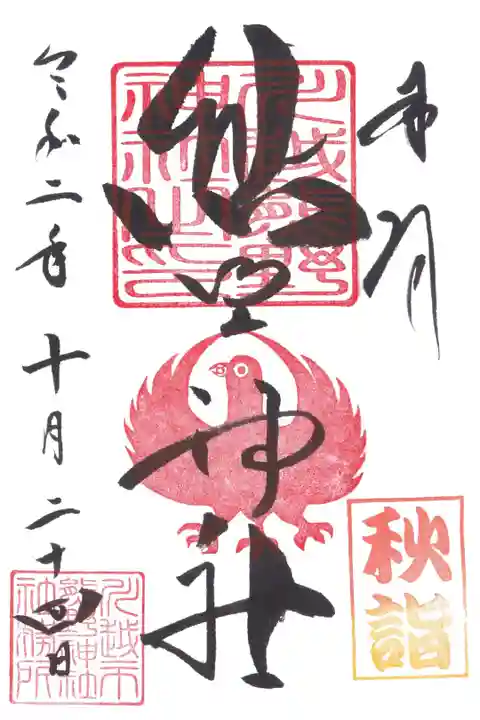 奉拝
熊野神社
川越熊野神社之印
秋詣
令和二年十月二十四日
川越市熊野神社社務所